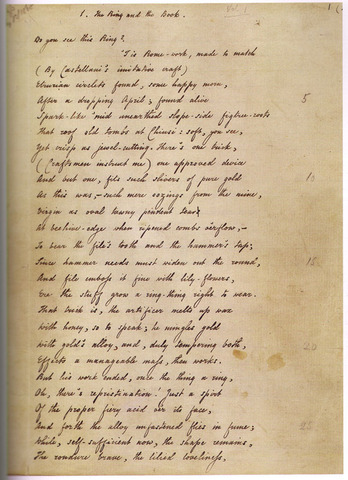 1. The Ring and the Book.
Do you see this Ring?
'Tis Rome-work, made to match
(By Castellani's imitative craft)
Etrurian circlets found, some happy morn,
After a dropping April; found alive 5
Spark-like 'mid unearthed slope-side figtree-roots
That roof old tombs at Chiusi: soft, you see,
Yet crisp as jewel-cutting. There's one trick,
(Craftsmen instruct me) one approved device
And but one, fits such slivers of pure gold 10
As this was,—such mere oozings from the mine,
Virgin as oval tawny pendent tear
At beehive-edge when ripened combs o'erflow,—
To bear the file's tooth and the hammer's tap;
Since hammer needs must widen out the round, 15
And file emboss it fine with lily-flowers,
Ere the stuff grow a ring-thing right to wear.
That trick is, the artificer melts up wax
With honey, so to speak; he mingles gold
With gold's alloy, and, duly tempering both, 20
Effects a manageable mass, then works.
But his work ended, once the thing a ring,
Oh, there's repristination! Just a spirt
Of the proper fiery acid o'er its face,
And forth the alloy unfastened flies in fume; 25
While, self-sufficient now, the shape remains,
The rondure brave, the lilied loveliness,